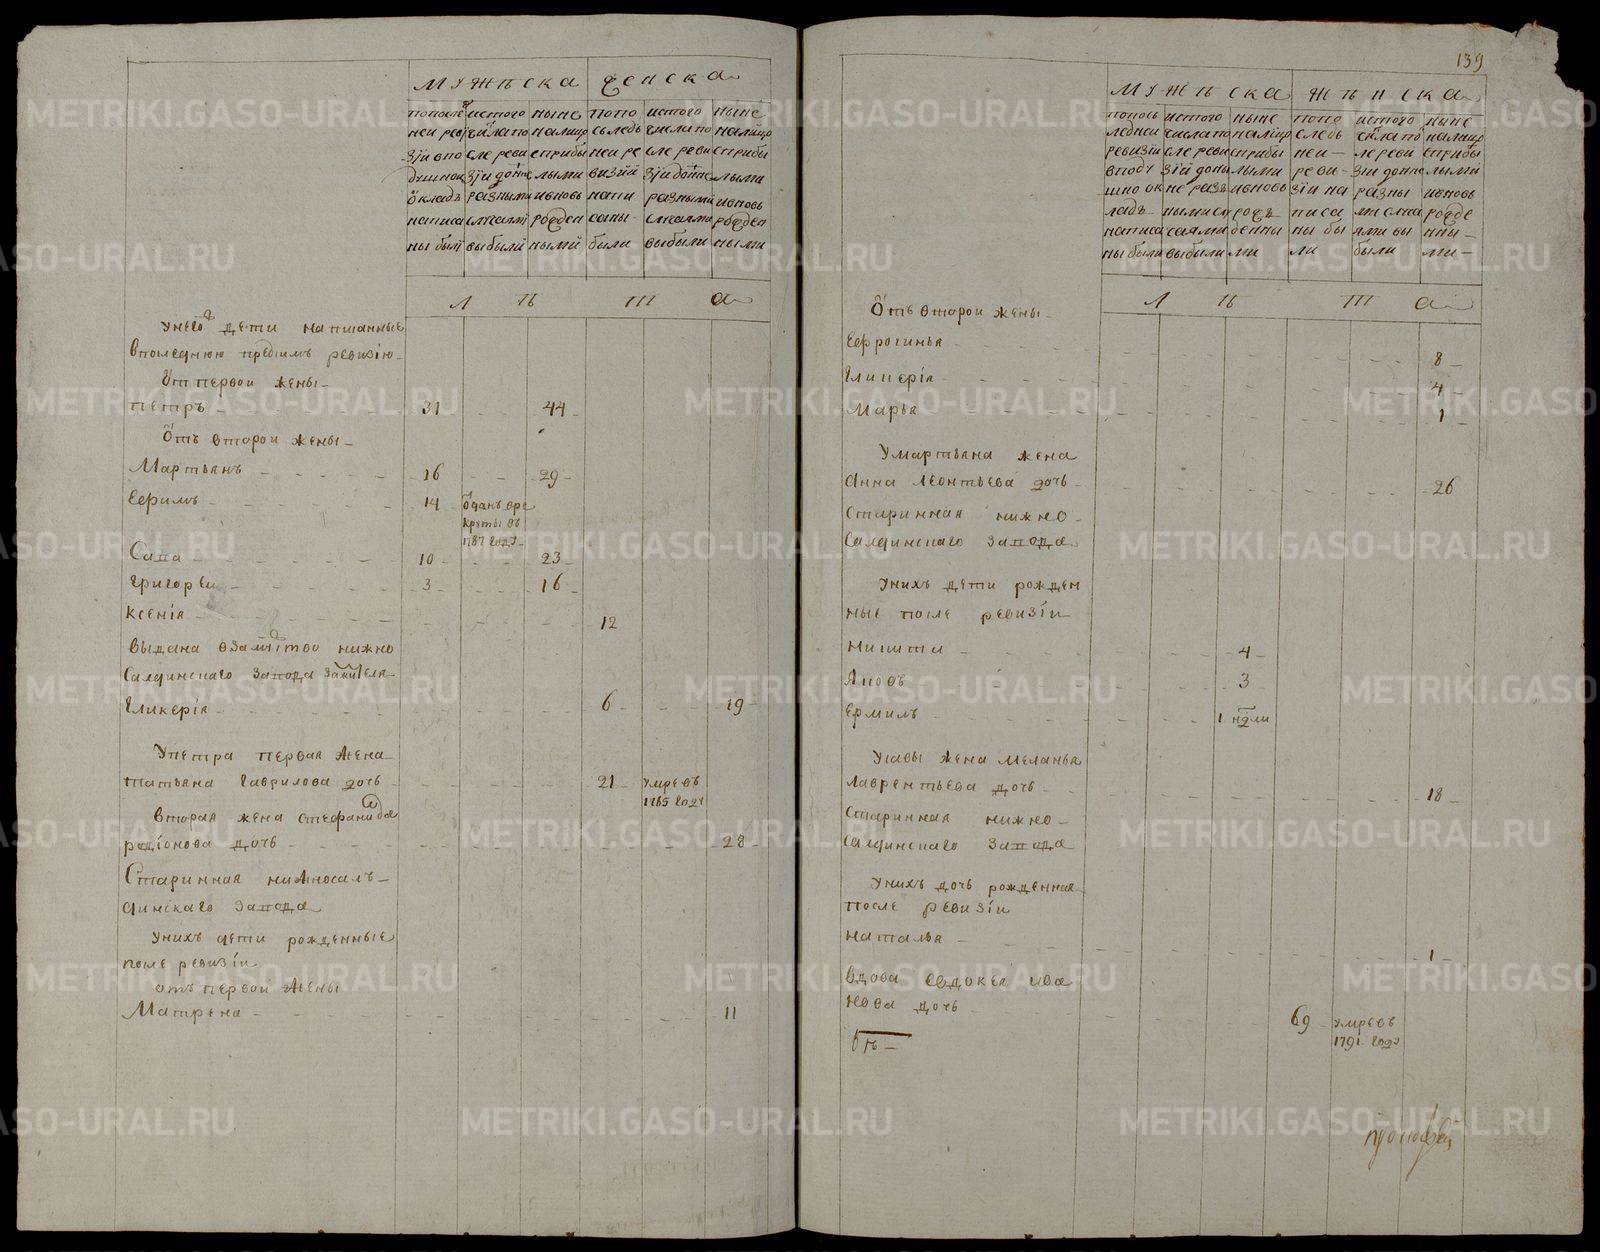 мужеска женска
попослѣ
ней реви
зіи впо
душной
окладъ
написа
ны были
истого
числа по
сле реви
зіи допне
разными
случаями
выбыли
ныне
налицо
сприбы
лыми
ивновь
рожден
ными
попо
следь
ней ре
визіи
напи
саны
были
истого
числа по
сле реви
зіи допне
разными
случаями
выбыли
ныне
налицо
сприбы
лыми
ивновь
рожден
ными
л ѣ т а
Унего дети написанные
впоследнюю предсимъ ревизію
От первои жены
петръ 31 44
Отъ второи жены
Мартьянъ 16 29
Ефримъ 14 Оданъ вре
круты въ
1787 году
Сава 10 23
Григореи 3 16
Ксенія 12
выдана взамуство нижно
Салдинскаго завода зажителя
Гликерія 6 19
Упетра первая жена
татьяна Гаврилова дочь 21 умре въ
1785 году
Вторая жена стефанида
родіонова дочь 28
Старинная нижносалъ
динскаго завода
Унихъ дети рожденные
после ревизіи
отъ первои жены
Матрена 11
139
мужеска женска
попось
леднеи
ревизіи
вподу
шно ок
ладъ
написа
ны были
истого
числа по
сле реви
зіи допы
не разъ
ными сл
учаями
выбыли
ныне
налицо
сприбы
лыми
ивновь
рож
денны
ми
попо
следь
неи
реви
зіи на
писа
ны бы
ли
истого
числа по
ле реви
зіи допне
разны
ми слуа
ями вы
были
ныне
налицо
сприбы
лыми
ивновь
рожде
нны
ми
л ѣ т а
Отъ второи жены
Ефрогинья 8
Гликерія 4
Марья 1
Умартьяна жена
Анна Леонтьева дочь 26
Старинная нижно
Салдинскаго завода
Унихъ дети рожден
ные после ревизіи
Никита 4
Яковъ 3
Ермилъ 1 нѣдли
Усавы жена меланья
Лаврентьева дочь 18
Старинная нижно
Салдинскаго завода
Унихъ дочь рожденная
после ревизіи
Наталья 1
Вдова Евдокея ива
нова дочь 69 умре въ
1791 году
METRIKI.GASO-URAL.RU